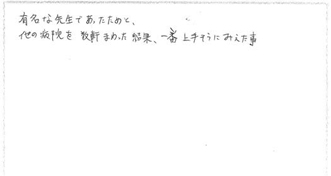 有名な先生であったためと、
他の病院を数軒まわった結果、一番上手そうにみえた事